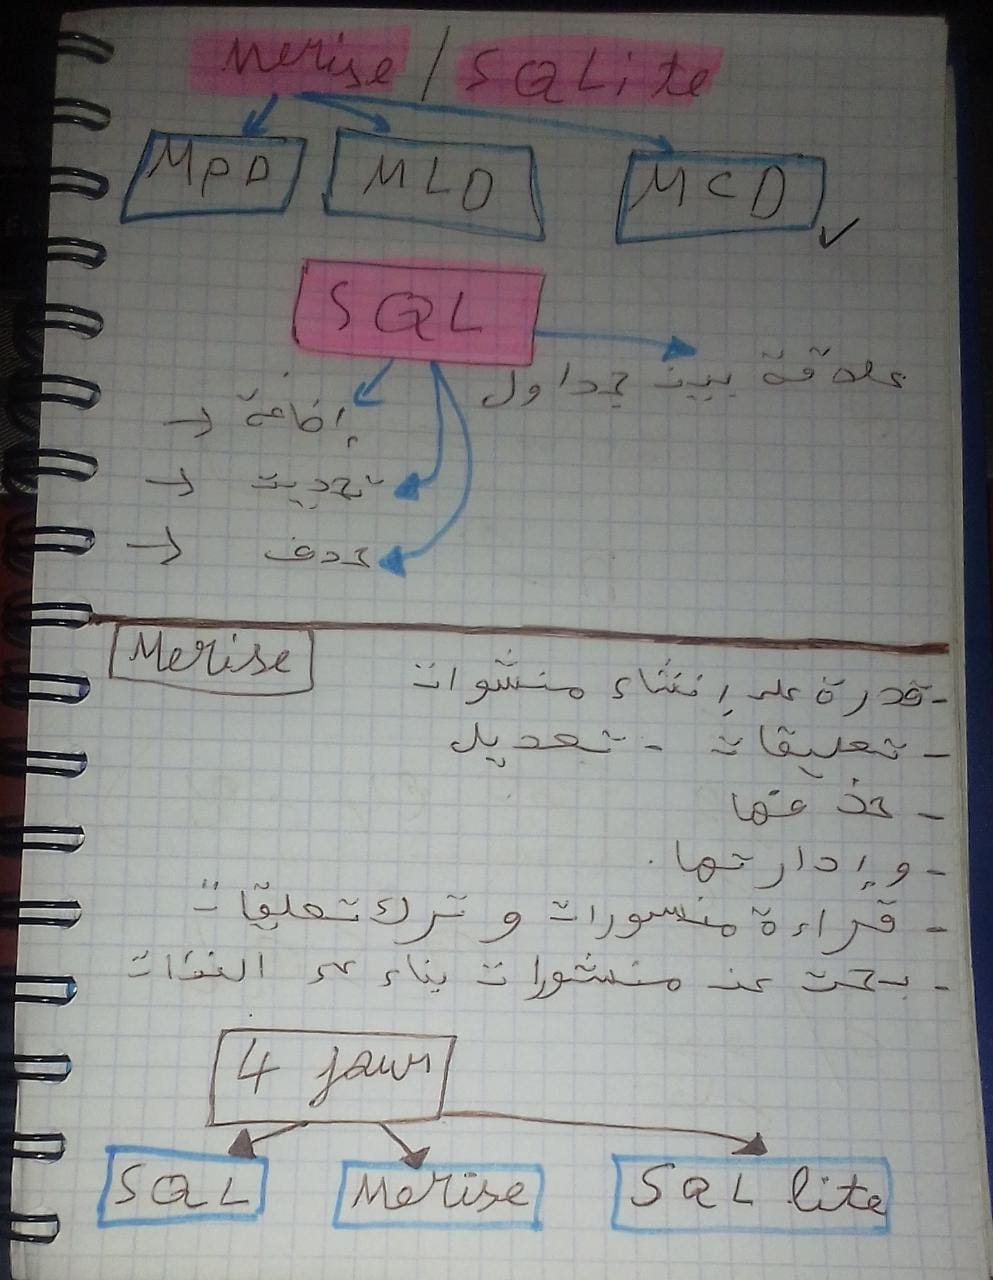 Merise / SQLite
MPD MLD MCD
SQL
علاقة بين جداول
إضافة
تحديث
حدف
Merise
- قدرة على إنشاء منشوات
- تعليقات - تعديل
- حذفها
- وإدارتها.
- قراءة منسورات و ترك تعليقات
- بحت عن منشورات بناء على الفئات
4 jours
SQL Merise SQL lite